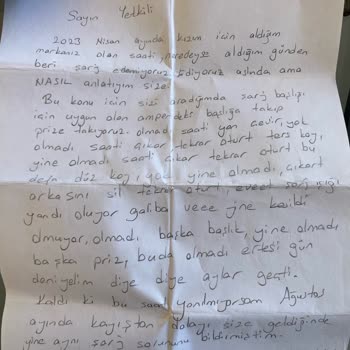 Sayın Yetkili
2023 Nisan ayında kızım için aldığım
markanız olan saati, neredeyse aldığım günden
beri şarj edemiyoruz. Ediyoruz aslında ama
NASIL anlatıyım size:
Bu konu için sizi aradığımda şarj başlığı
için uygun olan amperdeki başlığa takıp
prize takıyoruz. olmadı saati yan çevir, yok
olmadı saati çıkar tekrar oturt ters koy,
yine olmadı saati çıkar tekrar oturt bu
defa düz koy, yok yine olmadı, çıkart
arkasını sil tekrar oturt, eveet şarj ışığı
yandı oluyor galiba veee yine kesildi
olmuyor, olmadı başka başlık, yine olmadı
başka priz, buda olmadı ertesi gün
deniyelim diye diye aylar geçti.
Kaldı ki bu saat yanılmıyorsam Ağustos
ayında kayıştan dolayı size geldiğinde
yine aynı şarj sorununu bildirmiştim.